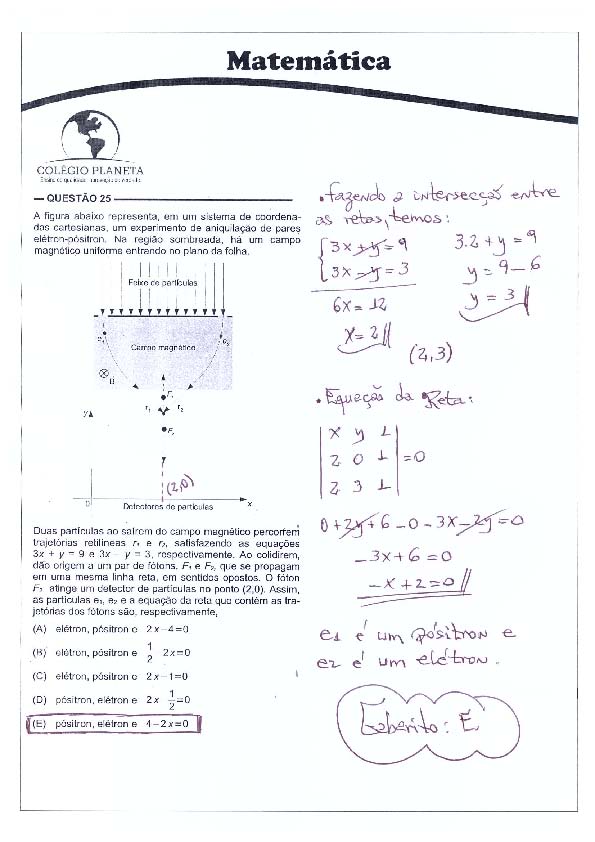 Matemática
COLÉGIO PLANETA
QUESTÃO 25
A figura abaixo representa, em um sistema de coordena-
das cartesianas, um experimento de aniquilação de pares
elétron-pósitron. Na região sombreada, há um campo
magnético uniforme entrando no plano da folha.
Feixe de partículas
e₁
e₂
Campo magnético
B
F₁
r₁ r₂
y
F₂
(2,0)
0
x
Detectores de partículas
Duas partículas ao saírem do campo magnético percorrem
trajetórias retilíneas r₁ e r₂, satisfazendo as equações
3x + y = 9 e 3x – y = 3, respectivamente. Ao colidirem,
dão origem a um par de fótons, F₁ e F₂, que se propagam
em uma mesma linha reta, em sentidos opostos. O fóton
F₂ atinge um detector de partículas no ponto (2,0). Assim,
as partículas e₁, e₂ e a equação da reta que contém as tra-
jetórias dos fótons são, respectivamente,
(A) elétron, pósitron e 2x – 4 = 0
(B) elétron, pósitron e 1/2 2x = 0
(C) elétron, pósitron e 2x – 1 = 0
(D) pósitron, elétron e 2x 1/2 = 0
(E) pósitron, elétron e 4 – 2x = 0
• Fazendo a intersecção entre
as retas, temos:
3x + y = 9 3.2 + y = 9
3x – y = 3 y = 9 – 6
6x = 12 y = 3 //
x = 2 //
(2,3)
• Equação da Reta:
x y 1
2 0 1 = 0
2 3 1
0 + 2y + 6 – 0 – 3x – 2y = 0
–3x + 6 = 0
–x + 2 = 0 //
e1 é um pósitron e
e2 é um elétron.
Gabarito: E